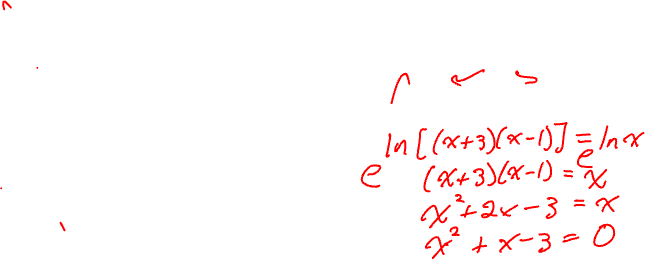 e^{ln[(x+3)(x-1)]} = e^{ln x}
(x+3)(x-1) = x
x² + 2x - 3 = x
x² + x - 3 = 0